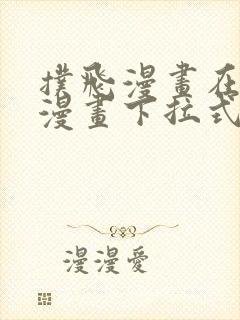 撲飛漫畫在
漫畫下拉式
漫漫愛